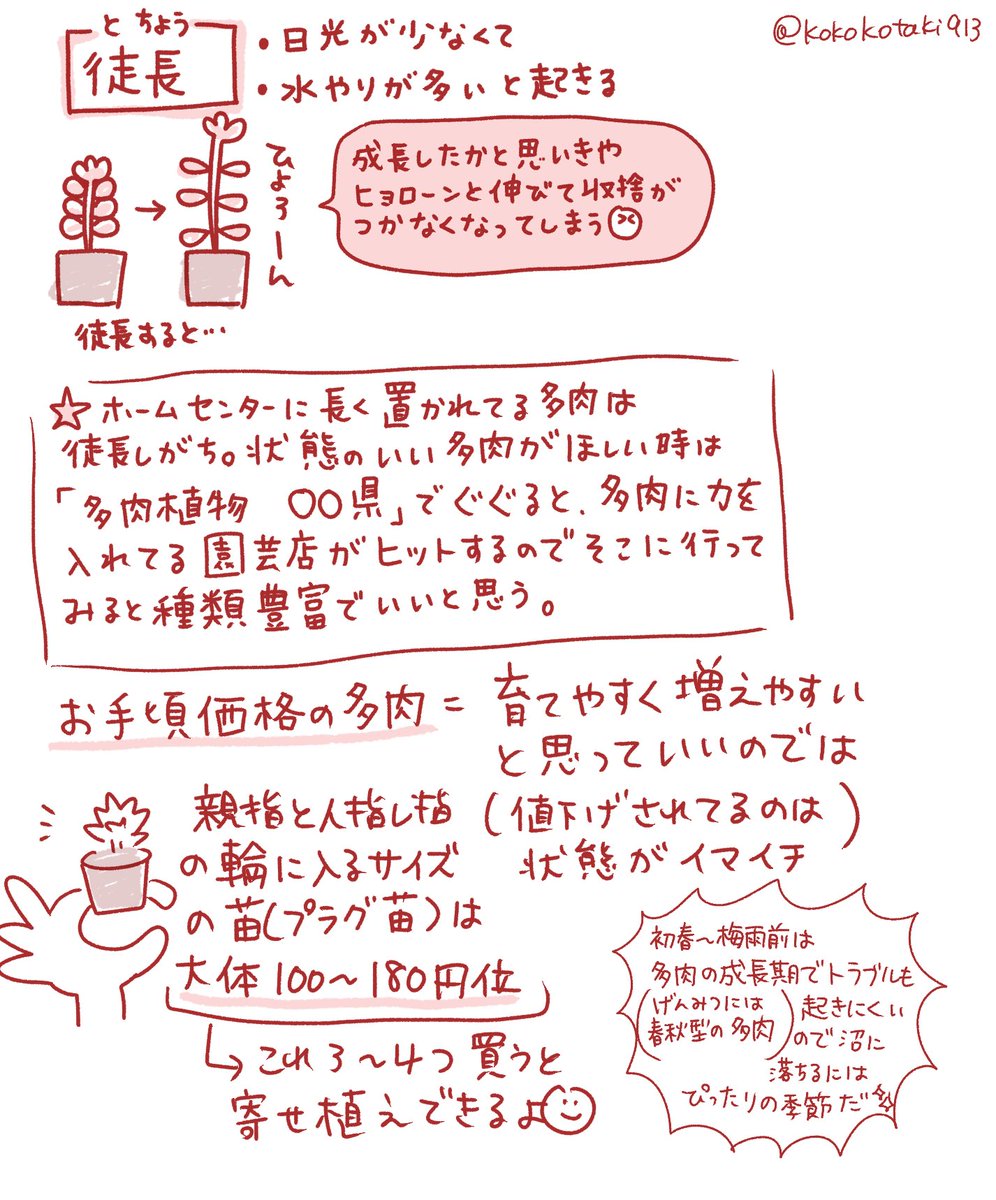 @kokokotaki913
とちょう
徒長
・日光が少なくて
・水やりが多いと起きる
ひょろーん
成長したかと思いきや
ヒョローンと伸びて収捨が
つかなくなってしまう
徒長すると…
☆ホームセンターに長く置かれてる多肉は
徒長しがち。状態のいい多肉がほしい時は
「多肉植物 〇〇県」でぐぐると、多肉に力を
入れてる園芸店がヒットするのでそこに行って
みると種類豊富でいいと思う。
お手頃価格の多肉 = 育てやすく増えやすい
と思っていいのでは
(値下げされてるのは
状態がイマイチ)
親指と人指し指
の輪に入るサイズ
の苗(プラグ苗)は
大体100〜180円位
↳これ3〜4つ買うと
寄せ植えできるよ
初春〜梅雨前は
多肉の成長期でトラブルも
(げんみつには
春秋型の多肉)
起きにくい
ので沼に
落ちるには
ぴったりの季節だ